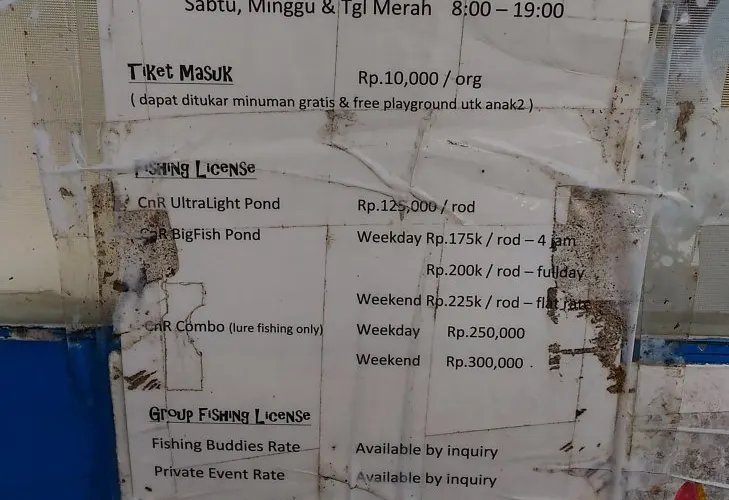 Sabtu, Minggu & Tgl Merah 8:00 – 19:00
Tiket Masuk Rp.10,000 / org
( dapat ditukar minuman gratis & free playground utk anak2 )
Fishing License
CnR UltraLight Pond Rp.125,000 / rod
CnR BigFish Pond Weekday Rp.175k / rod – 4 jam
Rp.200k / rod – fullday
Weekend Rp.225k / rod – flat rate
CnR Combo (lure fishing only) Weekday Rp.250,000
Weekend Rp.300,000
Group Fishing License
Fishing Buddies Rate Available by inquiry
Private Event Rate Available by inquiry